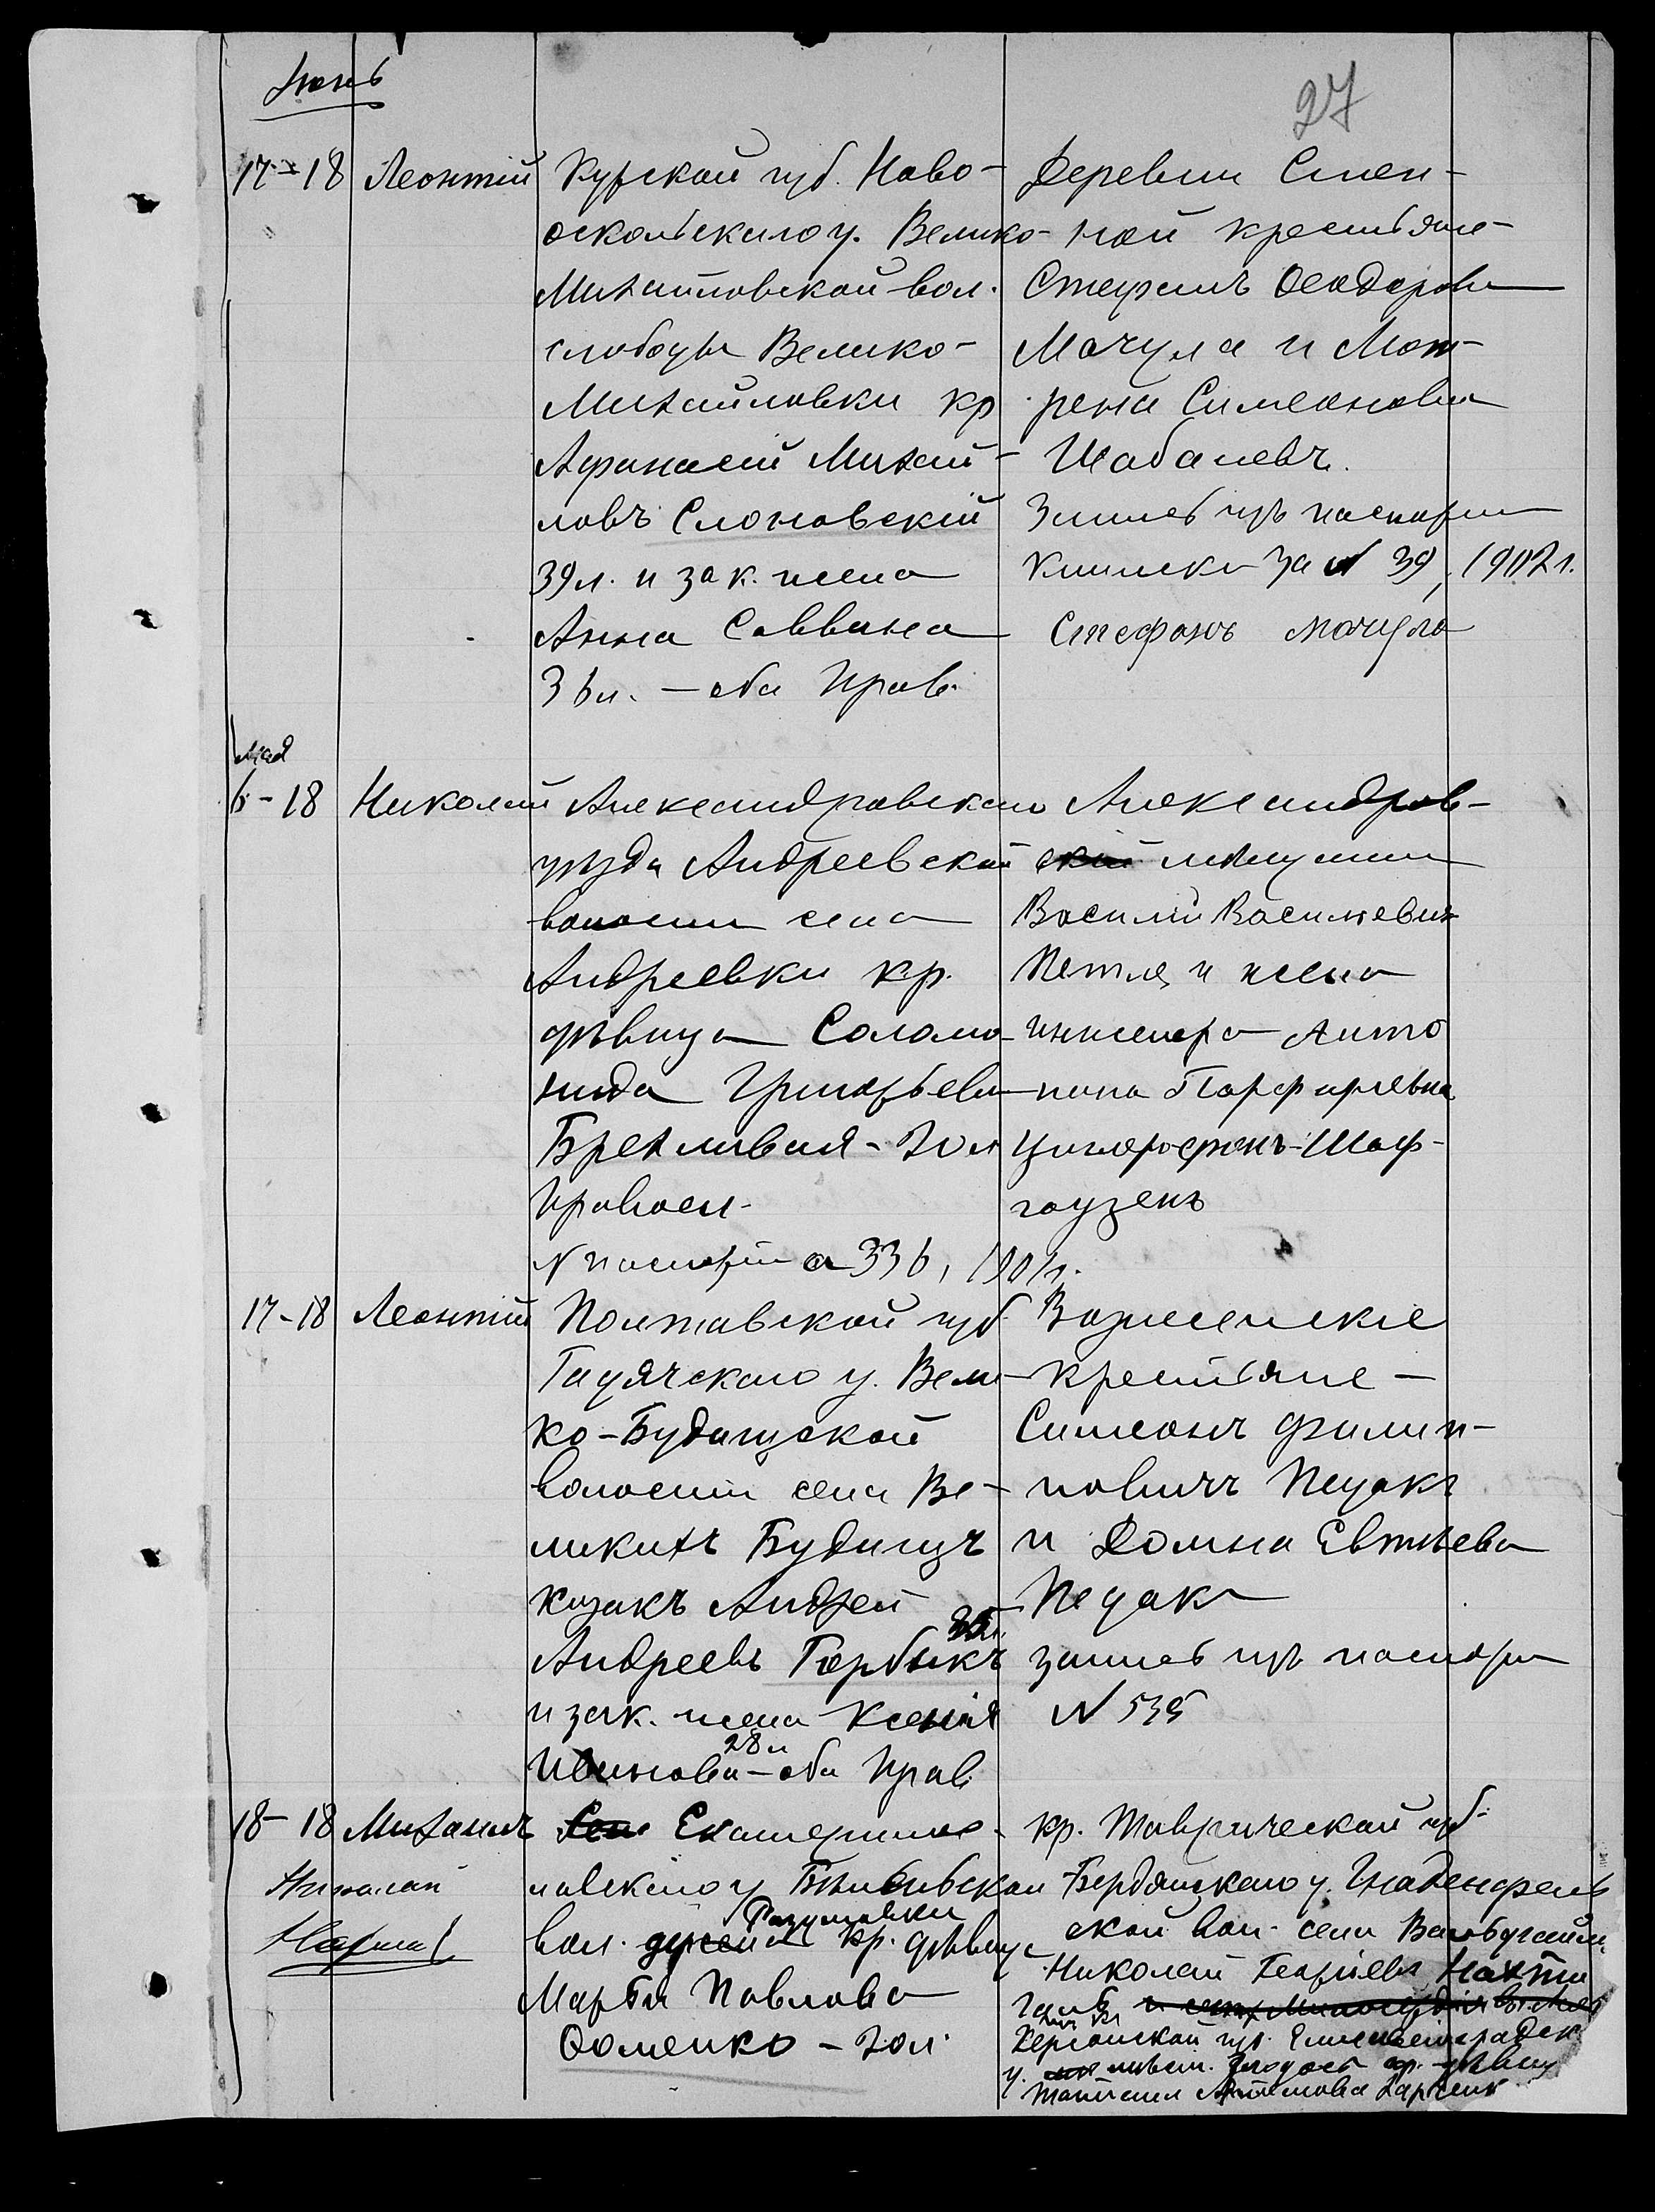 Іюнь
27
17-18 Леонтій
Курской губ. Ново-
оскольскаго у. Велико-
Михайловской вол.
слободы Велико-
Михайловки кр
Афанасій Михай-
ловъ Слоновскій
39 л. и зак. жена
Анна Саввина
36 л. – оба Прав.
Деревни Степ-
ной крестьяне
Стефанъ Ѳеодоровъ
Мачула и Мот-
рена Симеонова
Шабалевъ.
Запись изъ паспортн
книжки За № 39, 1902 г.
Стефанъ Мачула
мая
6-18 Николай
Александровскаго
уѣзда Андреевской
волости села
Андреевки кр.
дѣвица Соломо-
нида Григорьева
Брехливая - 20 л
Правосл.
№ паспорта 336, 1901 г.
Александров-
скій мѣщанин
Василій Васильевич
Петля и жена
инженера Анто
нина Порфирьевна
Шаф-
гаузенъ
17-18 Леонтій
Полтавской губ.
Гадячскаго у. Вели-
ко-Будищской
волости села Ве-
ликихъ Будищъ
казакъ Андрей
Андреевъ Горбыкъ
и зак. жена Ксенія
28 л
Иванова – оба Прав.
Вознесенские
крестьяне –
Симеонъ Филип-
повичъ Педакъ
и Домна Евтѣева
Педакъ
запись изъ паспорта
№ 535
18-18 Михаилъ
Николай
Екатерино-
славскаго у
Разумовки
вол. кр. дѣвица
Марѳа Павлова
Ѳоменко - 20 л.
кр. Таврической губ.
Бердянскаго у. Гнаденфельд
ской вол. села Вальдгейм
Николай Георгіевъ Нахти
галь
Херсонской губ. Елисаветградск
у. дѣвица
Татіана Артемова